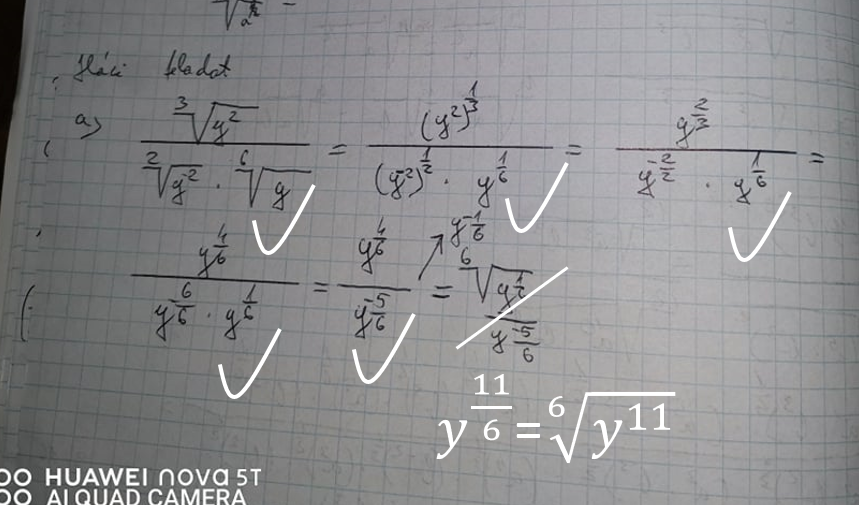 Házi feladat
a) \frac{\sqrt[3]{y^2}}{\sqrt[2]{y^{-2}} \cdot \sqrt[6]{y}} = \frac{(y^2)^{\frac{1}{3}}}{(y^{-2})^{\frac{1}{2}} \cdot y^{\frac{1}{6}}} = \frac{y^{\frac{2}{3}}}{y^{-\frac{2}{2}} \cdot y^{\frac{1}{6}}} =
y^{-\frac{1}{6}}
\frac{y^{\frac{4}{6}}}{y^{-\frac{6}{6}} \cdot y^{\frac{1}{6}}} = \frac{y^{\frac{4}{6}}}{y^{-\frac{5}{6}}} =
y^{\frac{11}{6}} = \sqrt[6]{y^{11}}
HUAWEI nova 5T
AI QUAD CAMERA